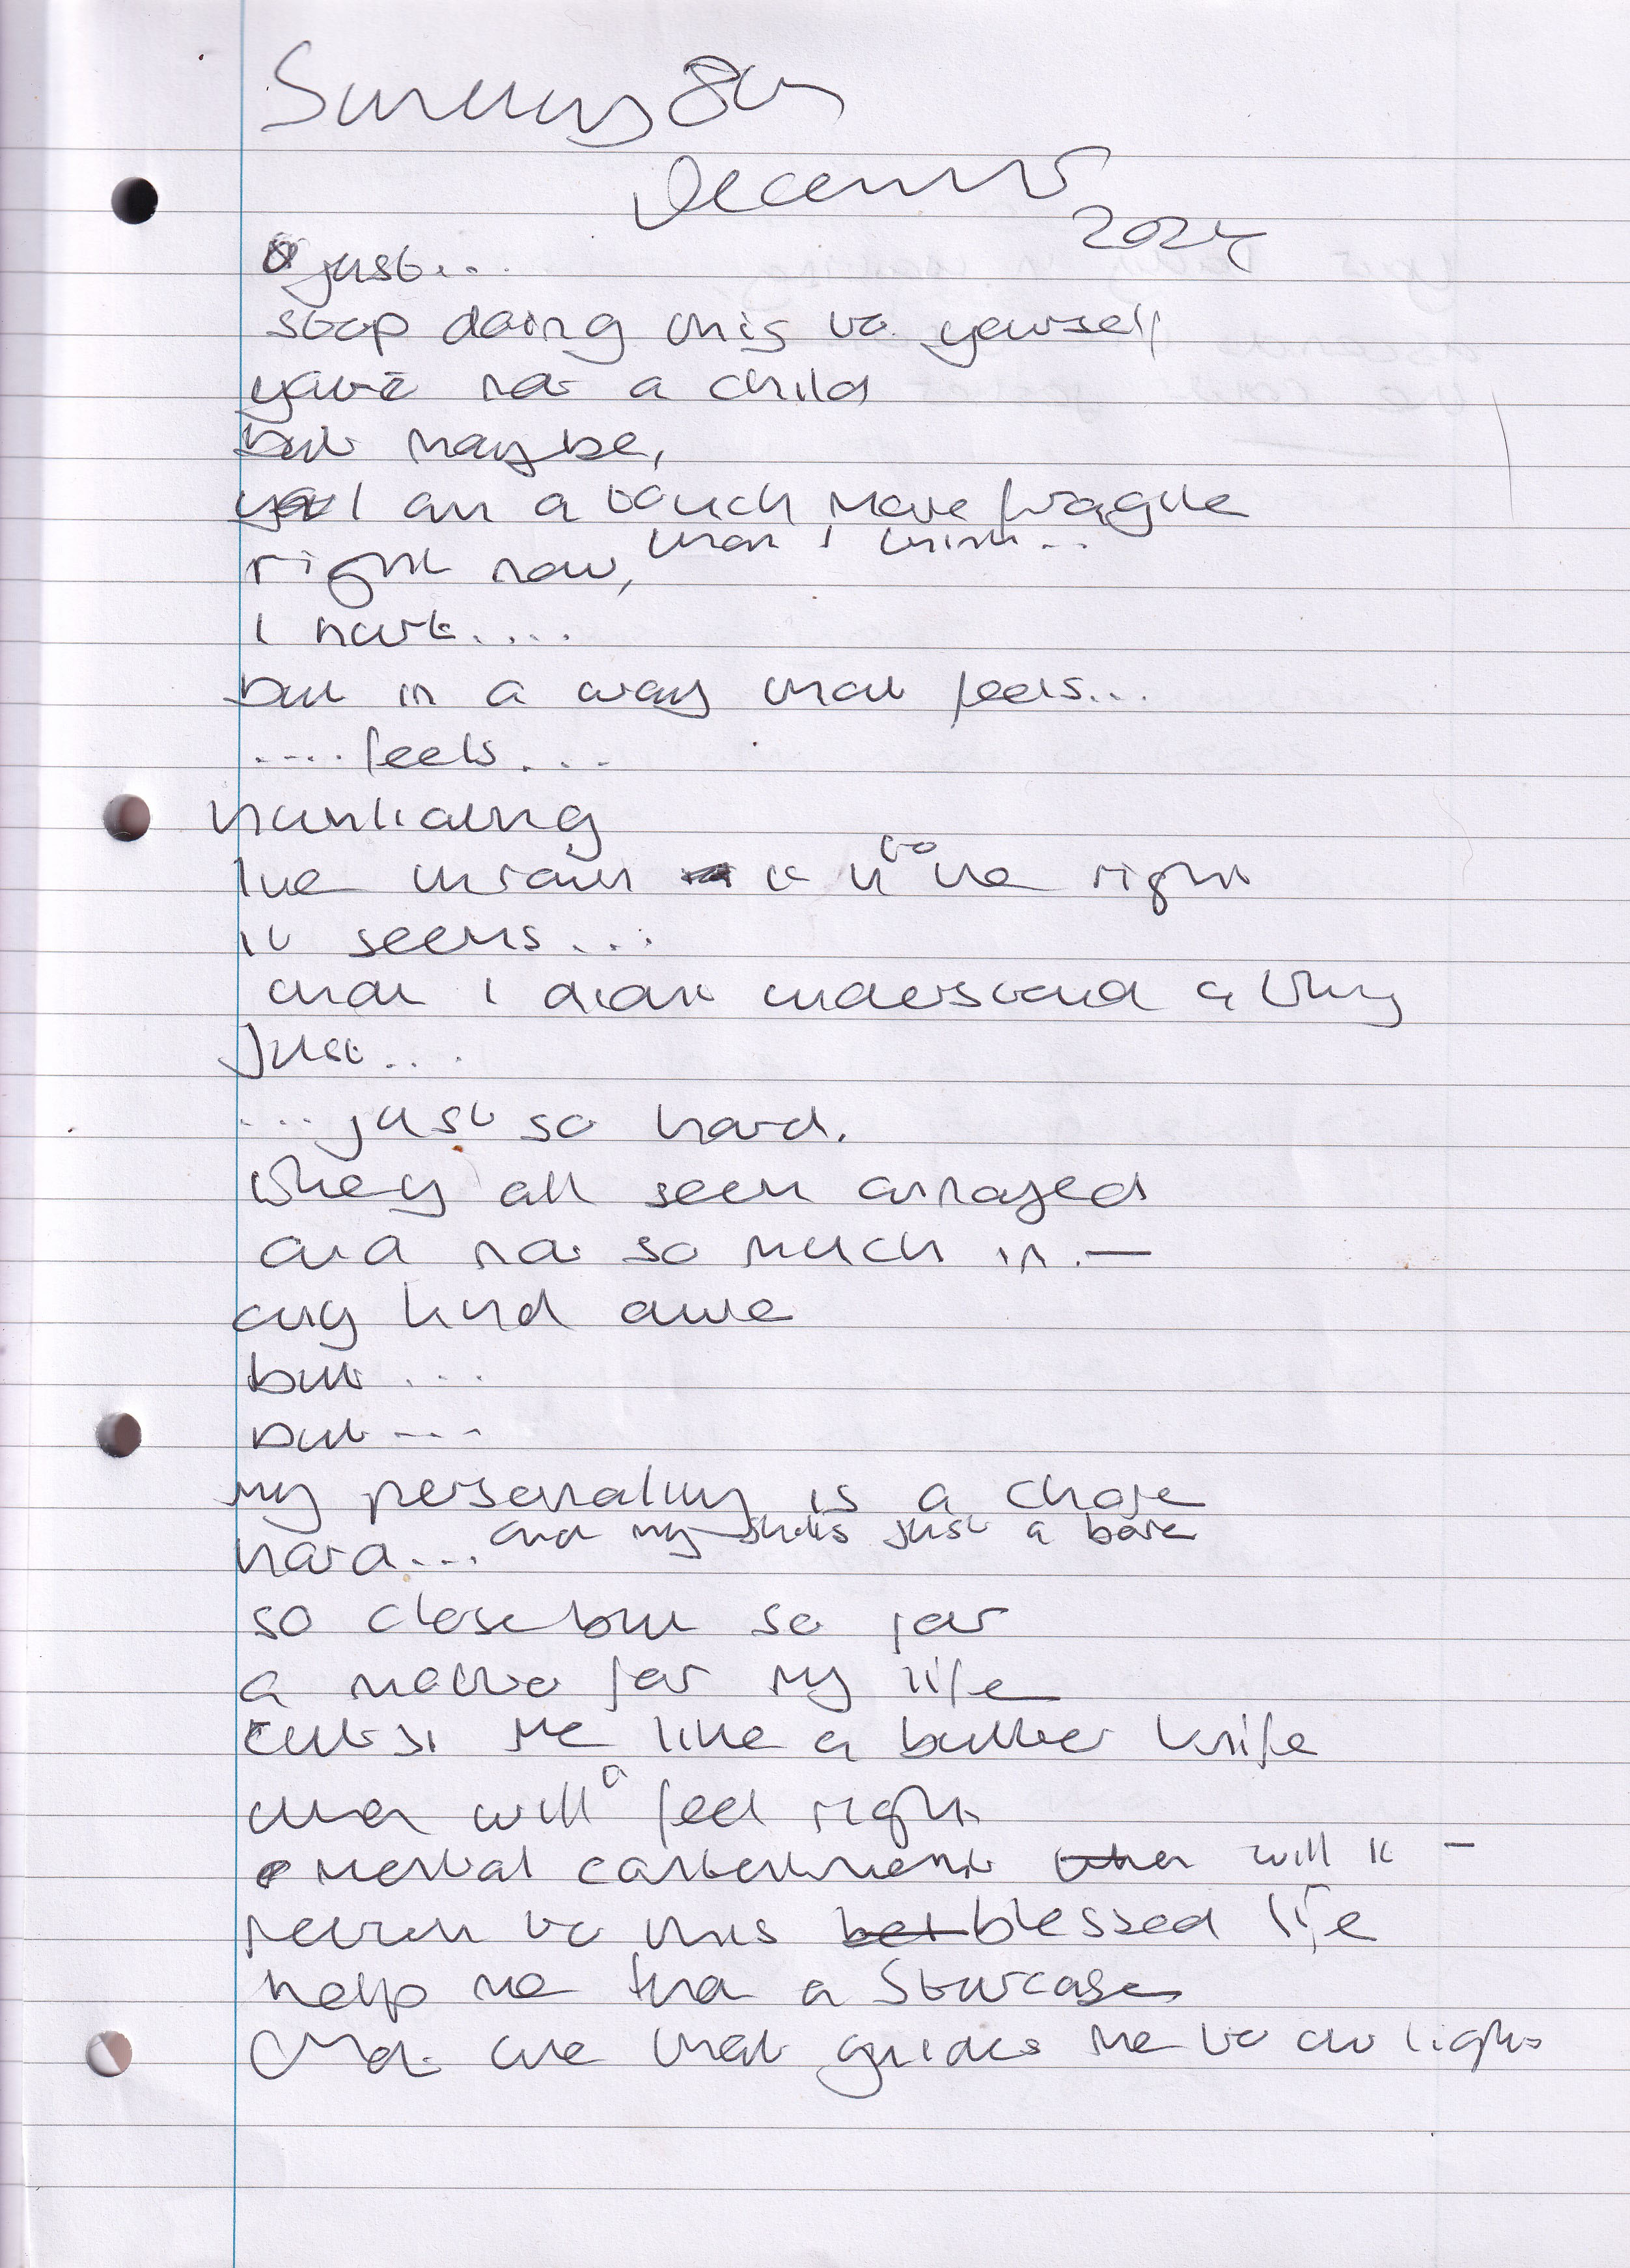 Sunday 8th
December
2024
just...
stop doing this to yourself
you're not a child
but maybe,
I am a touch more fragile
than I think...
right now,
I hurt....
but in a way that feels...
....feels...
humiliating
I've it to be right
it seems...
that I don't understand a thing
Just...
...just so hard.
they all seem annoyed
and not so much in -
any kind awe
but...
but ---
my personality is a chore
and my skills just a bore
hard...
so close but so far
a motto for my life
cuts me like a butter knife
when will a feel right
mental contentment will it -
return to this blessed life
help me find a staircase
that guides me to light